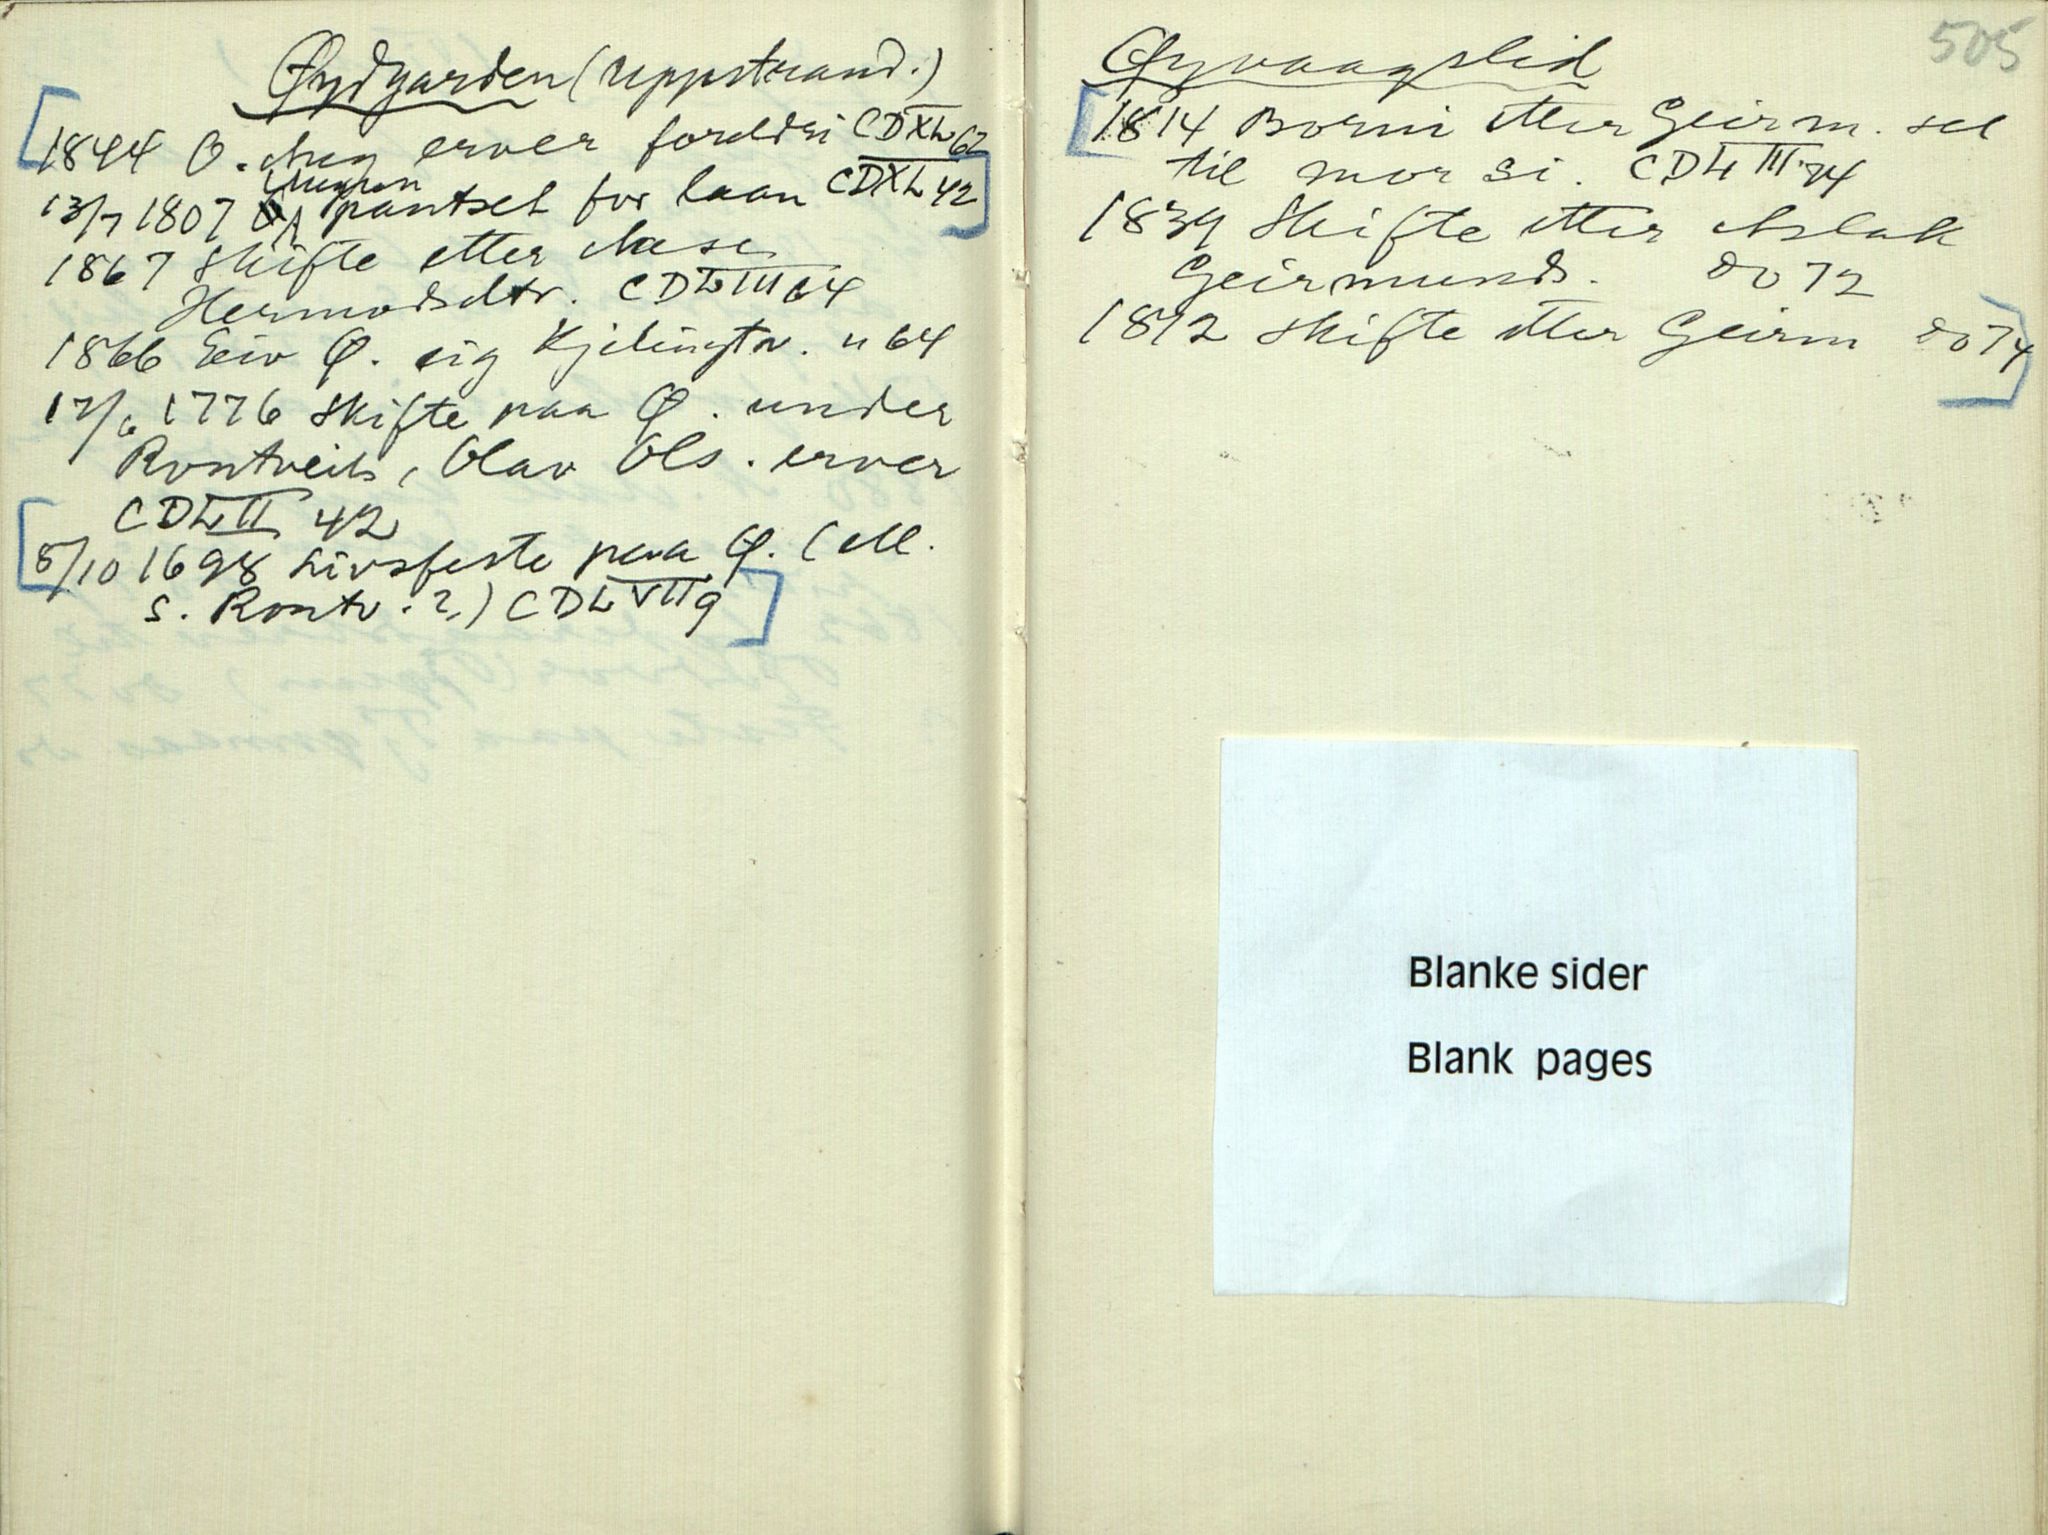 Øydgarden (Uppstrand.)
1844 O. Aug erver foreldri CDXL 62
Muggen
13/7 1807 pantset for laan CDXL 42
1867 Skifte etter Aase
Hermodsdtr. CDLIII 64
1866 Eiv Ø. eig Kjilingtv. " 64
17/6 1776 Skifte paa Ø. under
Rontveit, Olav Ols. erver
CDLII 42
8/10 1698 Livsfeste paa Ø. (ell.
s. Rontv. ?) CDLVII 9
505
Øyvaagslid
1814 Borni etter Geirm. sel
til mor si. CDLIII 74
1839 Skifte etter Aslak
Geirmunds. do 72
1812 Skifte etter Geirm do 74
Blanke sider
Blank pages